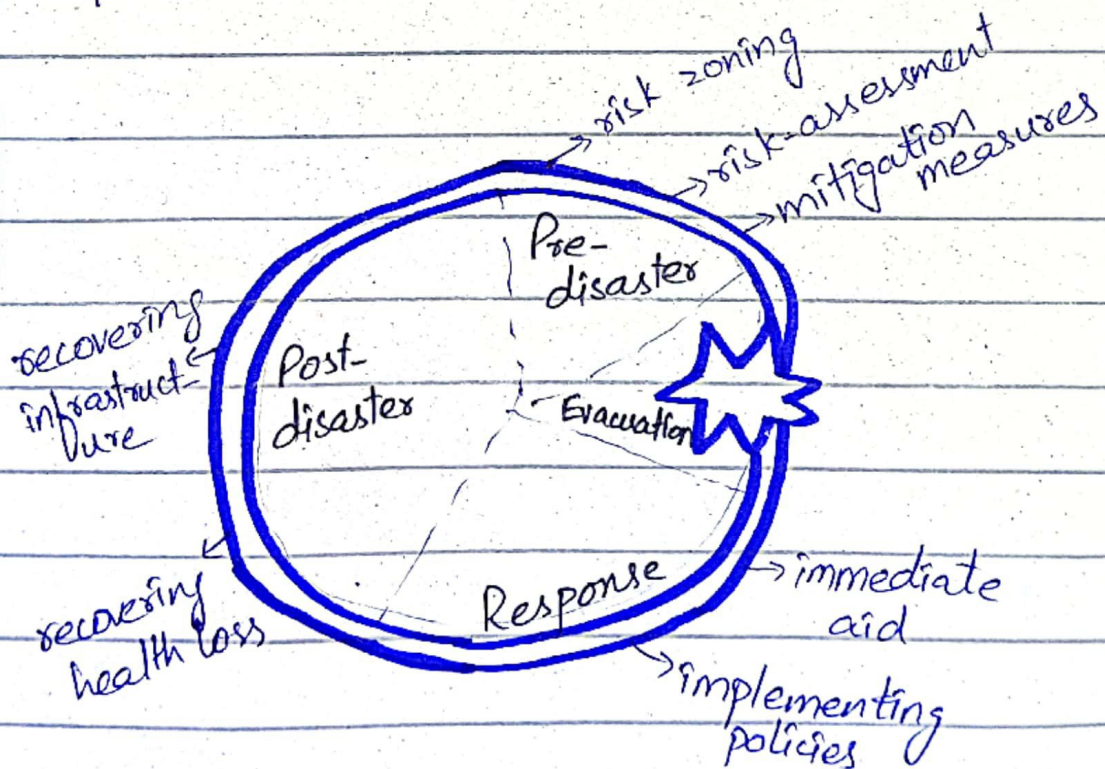 risk zoning
risk-assessment
mitigation
measures
Pre-
disaster
recovering
infrastruct-
ure
Post-
disaster
Evacuation
recovering
health loss
Response
immediate
aid
implementing
policies